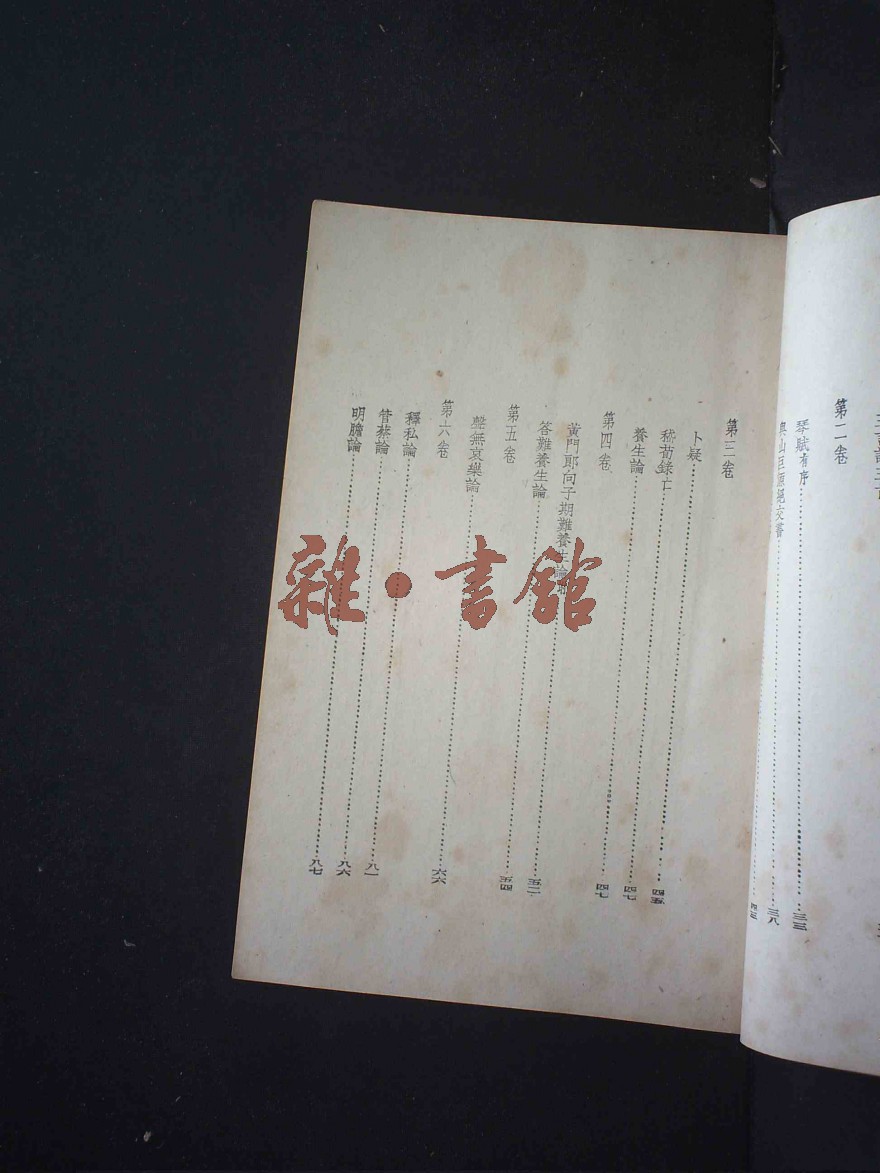 第二卷
琴賦有序……三三
與山巨源絕交書……三八
四三
第三卷
卜疑……四五
嵇荀錄亡……四七
養生論……四七
第四卷
黃門郎向子期難養生論……五二
答難養生論……五四
第五卷
聲無哀樂論……六六
第六卷
釋私論……八一
管蔡論……八六
明膽論……八七
雜·書館